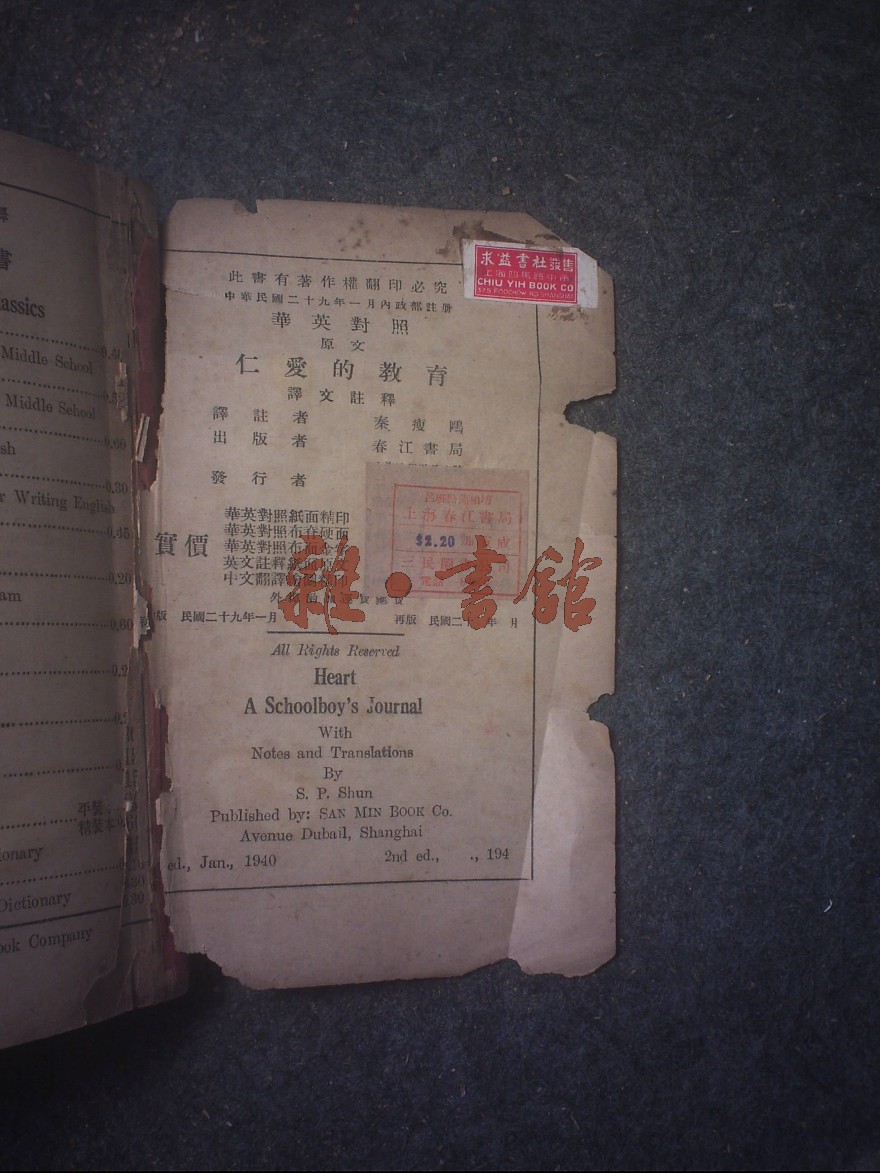 書
assics
Middle School
Middle School
sh
r Writing English
am
ionary
Dictionary
ook Company
求益書社發售
CHIU YIH BOOK CO
此書有著作權翻印必究
中華民國二十九年一月內政部註册
華英對照
原文
仁愛的教育
譯文註釋
譯註者 秦瘦鷗
出版者 春江書局
發行者
上海春江書局
$2.20
實價
華英對照紙面精印
華英對照布脊硬面
華英對照布面金字
英文註釋紙面原文
雜·書館
版 民國二十九年一月
再版 民國二十 年 月
All Rights Reserved
Heart
A Schoolboy's Journal
With
Notes and Translations
By
S. P. Shun
Published by: SAN MIN BOOK Co.
Avenue Dubail, Shanghai
ed., Jan., 1940 2nd ed., ., 194